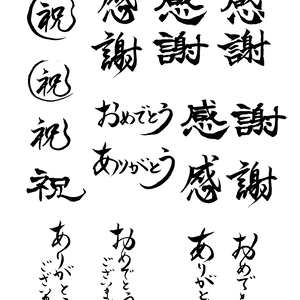 祝
祝
祝
祝
感謝
感謝
感謝
おめでとう
ありがとう
感謝
感謝
ありがとう
ございま
おめでとう
ございま
ありがと
おめでと